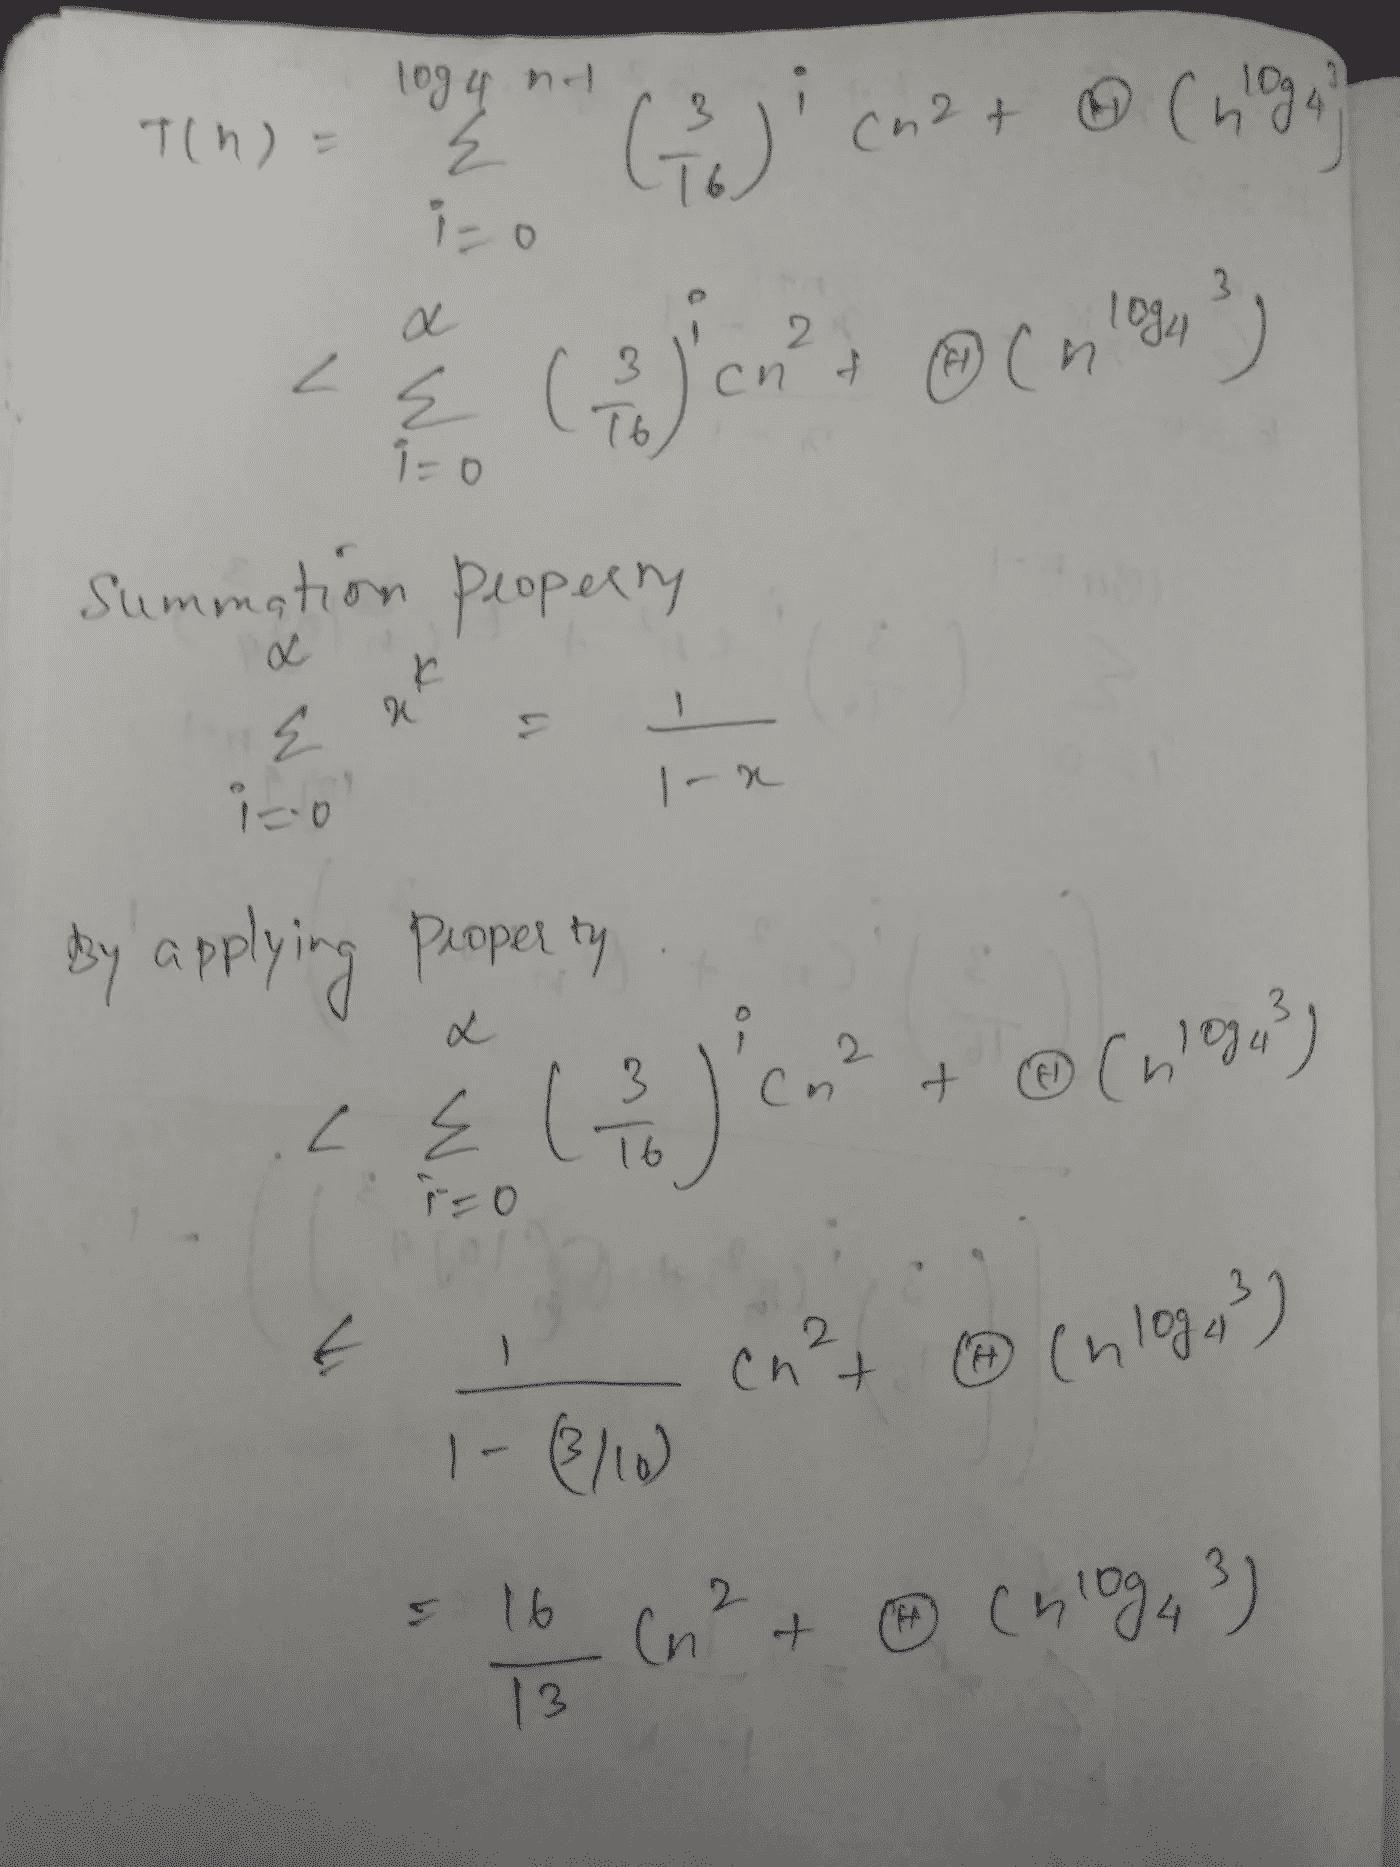 T(n) = Σ_{i=0}^{log₄ n-1} (3/16)^i cn² + Θ(n^{log₄3})
< Σ_{i=0}^{α} (3/16)^i cn² + Θ(n^{log₄3})
Summation property
Σ_{i=0}^{α} x^k = 1/(1-x)
By applying property.
< Σ_{i=0}^{α} (3/16)^i cn² + Θ(n^{log₄3})
≤ 1/(1-(3/10)) cn² + Θ(n^{log₄3})
= 16/13 cn² + Θ(n^{log₄3})